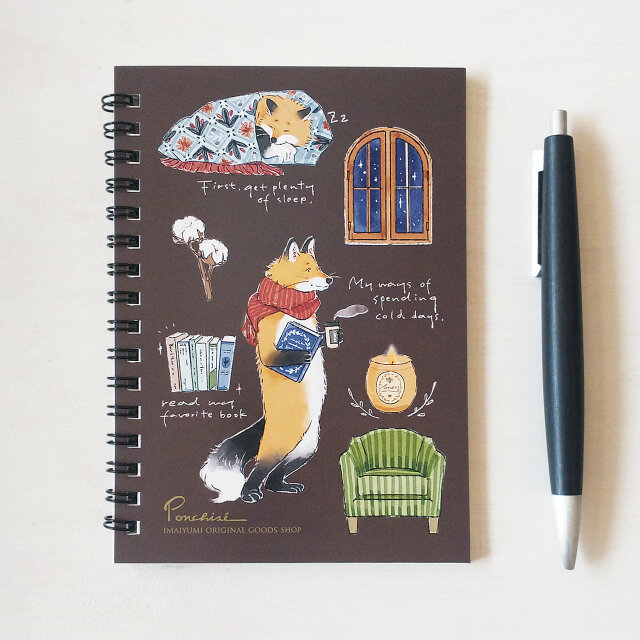 Zz
First, get plenty
of sleep.
My ways of
spending
cold days.
read my
favorite book
Ponchisé
IMAIYUMI ORIGINAL GOODS SHOP